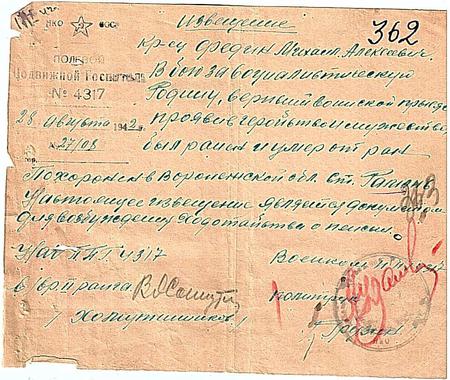 Извещение
362
НКО СССР
ПОЛЕВОЙ
Подвижной Госпиталь
№ 4317
28 августа 1942 г.
№ 27/08
Кр-ец Федин Михаил Алексеевич.
В бою за социалистическую
Родину, верный воинской присяге
проявив геройство и мужество
был ранен и умер от ран
Похоронен в Воронежской обл. ст.
Настоящее извещение является документом
для возбуждения ходатайства о пенсии.
Нач ППГ 4317
Военком ППГ 4317
в/вр. II ранга
политрук